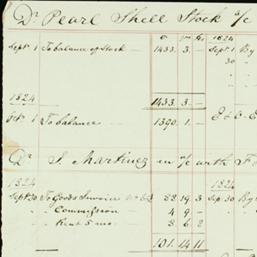 Dr Pearl Shell Stock a/c
1824
Septr 1 To balance of Stock — 1433. 3. — Sept 1 By
30 "
1824 1433. 3 —
Oct 1 To balance 1390. 1. — E & O E
Dr J. Martinez in a/c with
1824 1824
Sept 30 To Goods Invoice No 62 92 19 3 Sep. 30 By
" Commission — 4 9 —
" Rent 5 mo — 3 6 8
101. 14 11